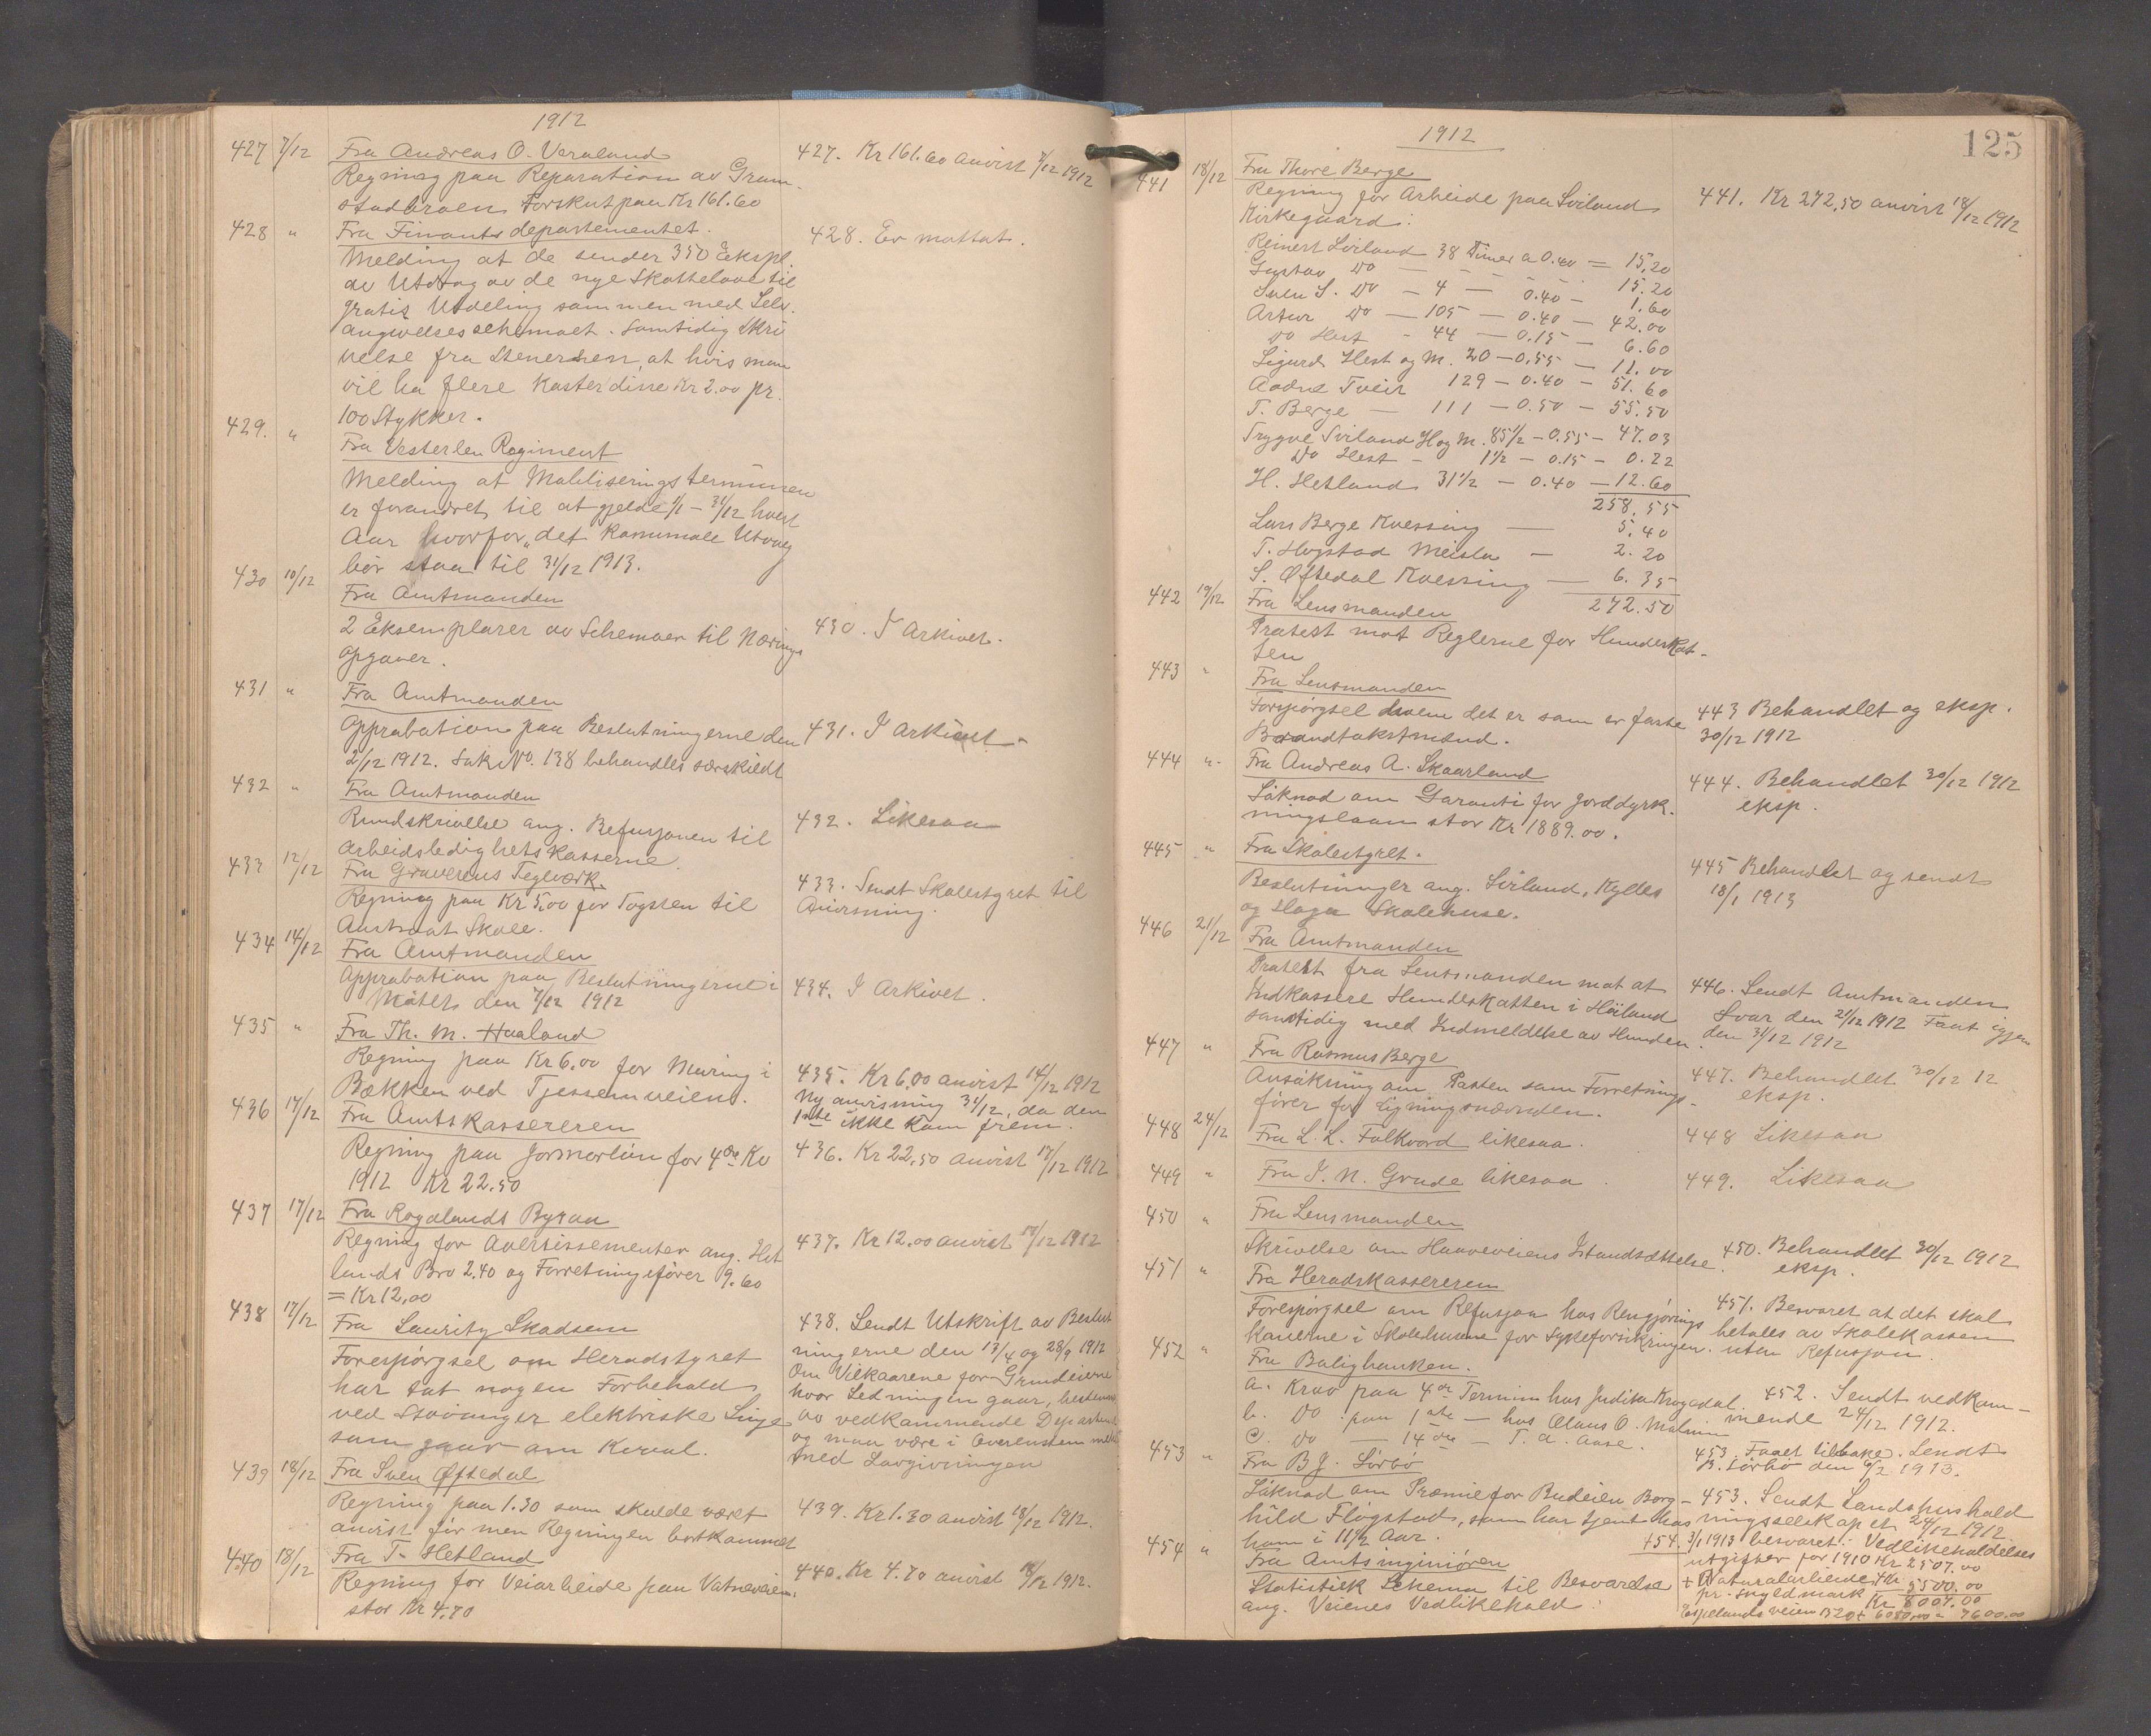 1912
427 7/12 Fra Andreas O. Vareland
Regning paa Reparation av Gram-
stadbroen Forskut paa Kr 161.60
427. Kr 161.60 anvist 7/12 1912
428 " Fra Finantsdepartementet.
Melding at de sender 350 Ekspl.
av Utdrag av de nye Skattelove til
gratis Utdeling sammen med Selv-
angivelsesschemaet. Samtidig Skri
velse fra Stenersen, at hvis man
vil ha flere koster disse Kr 2.00 pr.
100 Stykker.
428. Er mottat.
429. " Fra Vesterlen Regiment
Melding at Mobiliseringsterminen
er forandret til at gjelde 1/1 - 31/12 hvert
Aar hvorfor det kommunale Utvalg
bør staa til 31/12 1913.
430 10/12 Fra Amtmanden
2 Eksemplarer av Schemaer til Nærings
opgaver.
430. I Arkivet.
431 " Fra Amtmanden
Approbation paa Beslutningerne den
2/12 1912. Sak No. 138 behandles særskildt
431. I Arkivet.
432 " Fra Amtmanden
Rundskrivelse ang. Refusjonen til
Arbeidsledighetskasserne.
432. Likesaa
433 12/12 Fra Graverens Teglverk.
Regning paa Kr 5.00 for Tagsten til
Austraat Skole.
433. Sendt Skolestyret til
Anvisning.
434 14/12 Fra Amtmanden
Approbation paa Beslutningerne i
Møtet den 7/12 1912
434. I Arkivet.
435 " Fra Th. M. Haaland
Regning paa Kr 6.00 for Muring i
Bækken ved Tjessemveien.
435. Kr 6.00 anvist 14/12 1912
Ny anvisning 31/12, da den
1ste ikke kom frem.
436 17/12 Fra Amtskassereren
Regning paa Jormorløn for 4de Kv
1912 Kr 22.50
436. Kr 22.50 anvist 17/12 1912
437 17/12 Fra Rogalands Byraa
Regning for Avertissementer ang. Het
lands Bro 2.40 og Forretningsfører 9.60
= Kr 12,00
437. Kr 12.00 anvist 17/12 1912
438 17/12 Fra Lauritz Skadsem
Forespørgsel om Heradstyret
har tat nogen Forbehold
ved Stavanger elektriske Linje
som gaar om Kvaal.
438. Sendt Utskrift av Beslut
ningerne den 13/4 og 28/9 1912
Om Vilkaarene for Grundeierne
hvor Ledningen gaar, bestemmes
av vedkommende Departement
og maa være i Overensstemmelse
med Lovgivningen
439 18/12 Fra Sven Øftedal
Regning paa 1.30 som skulde været
anvist før men Regningen bortkommet
439. Kr 1.30 anvist 18/12 1912.
440 18/12 Fra T. Hetland
Regning for Veiarbeide paa Vatneveien.
stor Kr 4.70
440. Kr 4.70 anvist 18/12 1912.
125
1912
441 18/12 Fra Thore Berge
Regning for Arbeide paa Sviland
Kirkegaard:
441. Kr 272.50 anvist 18/12 1912
Reinert Sviland 38 Timer a 0.40 = 15,20
Gustav Do — - - - 15.20
Sven S. Do — 4 — 0.40 — 1.60
Artur Do — 105 — 0.40 — 42.00
Do Hest - 44 — 0.15 — 6.60
Sigurd Hest og M. 20 — 0.55 — 11.00
Aadne Tveit 129 — 0.40 — 51.60
T. Berge — 111 — 0.50 — 55.50
Trygve Sviland H og M. 85 1/2 — 0.55 — 47.03
Do Hest - 1 1/2 — 0.15 — 0.22
H. Hetland 31 1/2 — 0.40 — 12.60
258,55
Lars Berge Kvessing — 5.40
T. Hogstad Meisla — 2.20
S. Øftedal Kvessing — 6.35
272.50
442 19/12 Fra Lensmanden
Protest mot Reglerne for Hundeskat-
ten
443 " Fra Lensmanden
Forspørgsel hvem det er som er faste
Brandtakstmænd.
443 Behandlet og eksp.
30/12 1912
444 " Fra Andreas A. Skaarland
Søknad om Garanti for Jorddyrk-
ningslaan stor Kr 1889.00.
444. Behandlet 30/12 1912
eksp.
445 " Fra Skolestyret.
Beslutninger ang. Sviland, Kylles
og Hogen Skolehuse.
445 Behandlet og sendt
18/1 1913
446 21/12 Fra Amtmanden
Protest fra Lensmanden mot at
Indkassere Hundeskatten i Høiland
samtidig med Indmeldelse av Hunden.
446. Sendt Amtmanden
Svar den 21/12 1912 Faat igjen
den 31/12 1912
447 " Fra Rasmus Berge
Ansøkning om Posten som Forretnings-
fører for Ligningsnævnden.
447. Behandlet 30/12 12
eksp.
448 24/12 Fra L. L. Folkvord likesaa.
448 Likesaa
449 " Fra I. N. Grude likesaa.
449. Likesaa
450 " Fra Lensmanden
Skrivelse om Haaveveiens Istandsættelse.
450. Behandlet 30/12 1912
eksp.
451 " Fra Heradskassereren
Forespørgsel om Refusjon hos Rengjørings
konerne i Skolehusene for Sykeforsikringen.
451. Besvaret at det skal
betales av Skolekassen
uten Refusjon.
452 " Fra Boligbanken.
a. Krav paa 4de Termin hos Judita Krogedal.
b. Do paa 1ste — hos Olaus O. Malmin
c. Do — 14de — T. A. Aase.
452. Sendt vedkom-
mende 24/12 1912.
453 " Fra B J. Sørbø
Søknad om Præmie for Budeien Borg-
hild Fløgstad, som har tjent hos
ham i 11 1/2 Aar.
453. Faaet tilbake. Sendt
B. Sørbø den 6/2 1913.
453. Sendt Landshushold
ningsselskapet 24/12 1912.
454 " Fra Amtsingeniøren
Statistisk Schema til Besvarelse
ang. Veienes Vedlikehold.
454. 3/1 1913 besvaret: Vedlikeholdelses
utgifter for 1910 Kr 2507.00
+ Naturalarbeide Kr 5500.00
pr. Skyldmark Kr 8007.00
Espelandsveien 1520 + 6080,00 = 7600.00